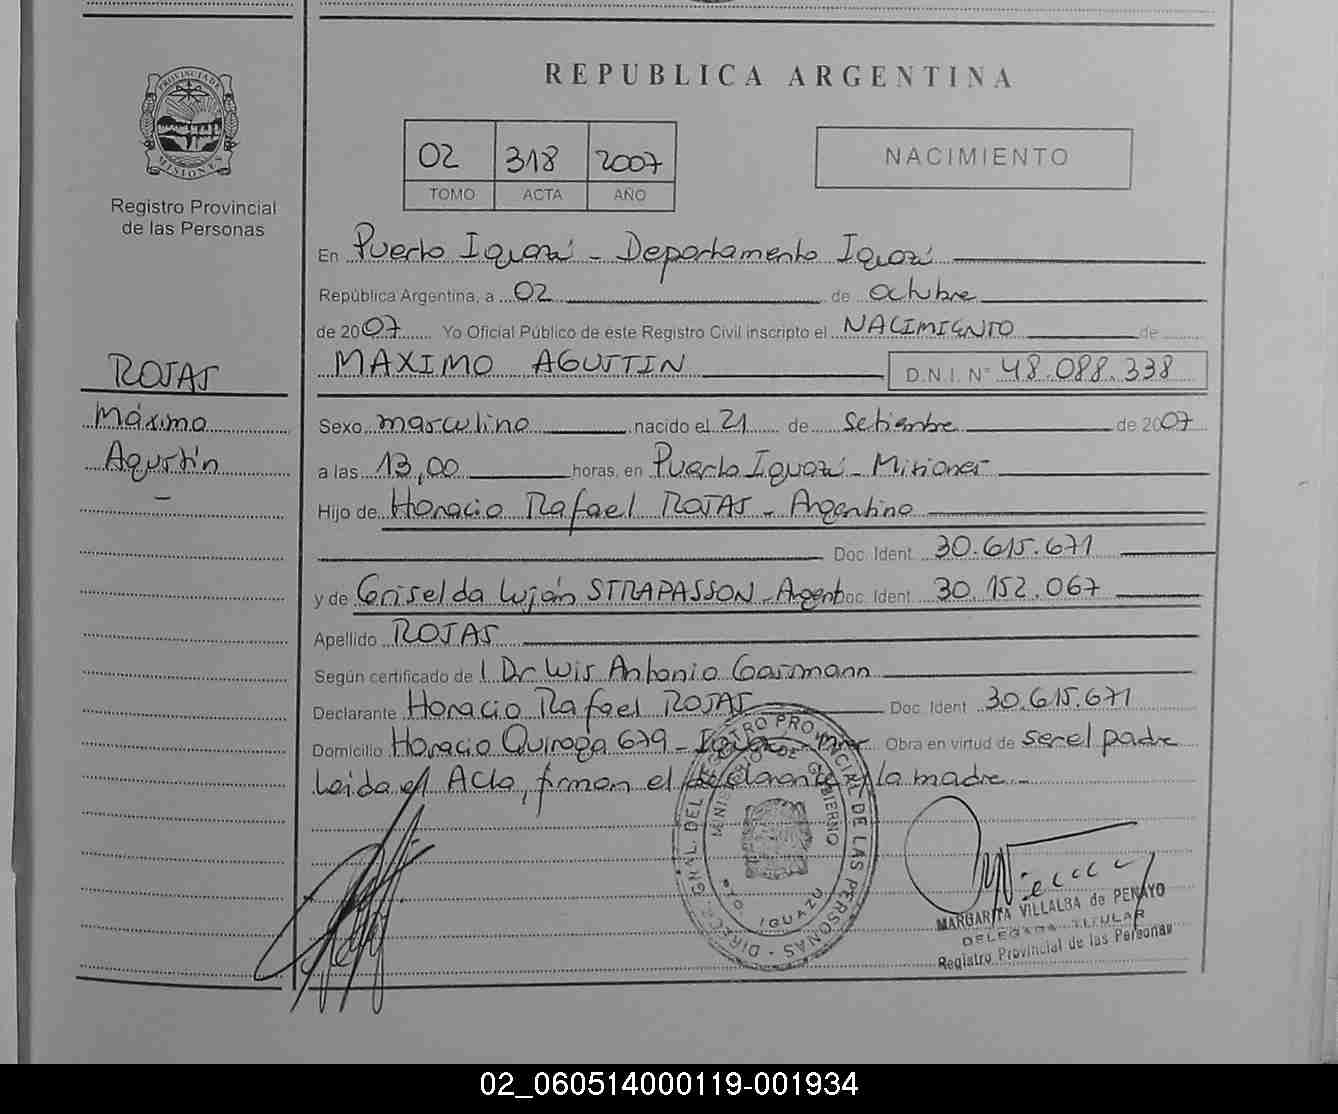 REPUBLICA ARGENTINA
PROVINCIA DE
MISIONES
Registro Provincial
de las Personas
02 318 2007
TOMO ACTA AÑO
NACIMIENTO
En Puerto Iguazú - Departamento Iguazú
República Argentina, a 02 de octubre
de 2007 Yo Oficial Público de este Registro Civil inscripto el NACIMIENTO de
MAXIMO AGUSTIN D.N.I. N° 48.088.338
ROJAS
Máximo
Agustín
-
Sexo masculino nacido el 21 de setiembre de 2007
a las 13,00 horas, en Puerto Iguazú - Misiones
Hijo de Horacio Rafael ROJAS - Argentino
Doc. Ident. 30.615.671
y de Griselda Luján STRAPASSON - Argent Doc. Ident. 30.152.067
Apellido ROJAS
Según certificado de l Dr Luis Antonio Gassmann
Declarante Horacio Rafael ROJAS Doc. Ident. 30.615.671
Domicilio Horacio Quiroga 679 - Iguazú - Mnes Obra en virtud de ser el padre
Leida el Acta, firman el declarante y la madre -
DIREC. GRAL. DEL REGISTRO PROVINCIAL DE LAS PERSONAS
MINISTERIO DE GOBIERNO
PTO. IGUAZU
MARGARITA VILLALBA de PENAYO
DELEGADA TITULAR
Registro Provincial de las Personas
02_060514000119-001934